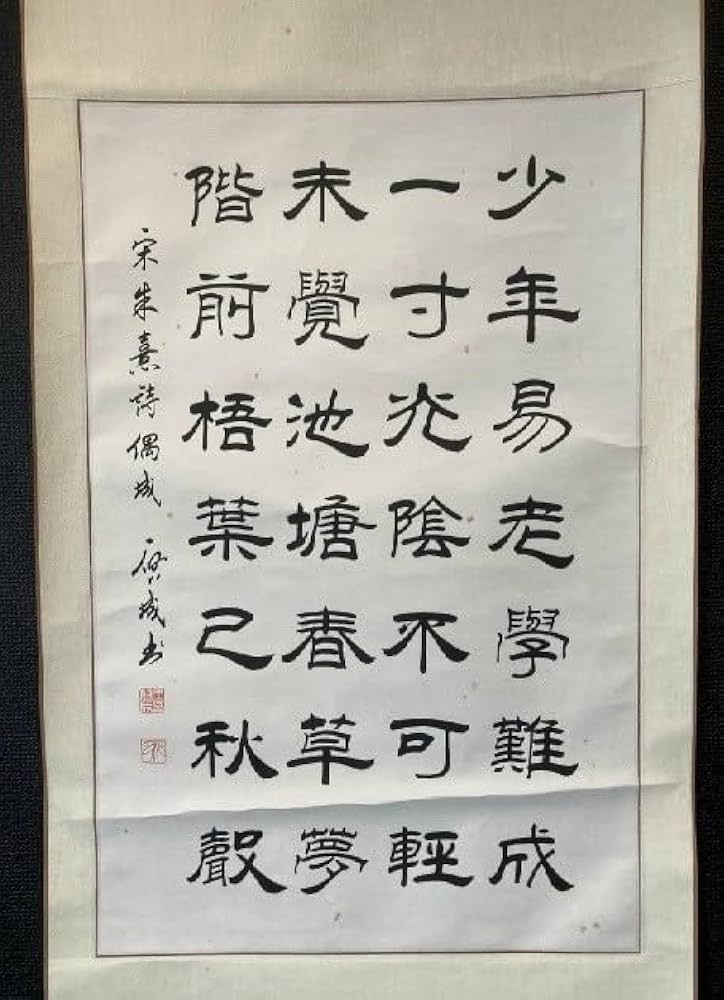 少年易老學難成
一寸光陰不可輕
未覺池塘春草夢
階前梧葉已秋聲
宋朱熹詩偶成
成书